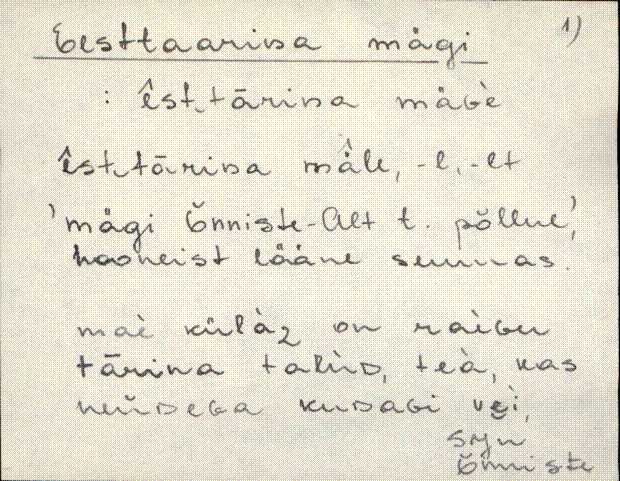 Eesttaarina mägi 1)
: êst‿tāriᴅa mäɢè
êst‿tāriᴅa mäle, -l, -lt
'mägi Õnniste-Alt t. põllul',
hooneist lääne suunas.
maè külàz on raèɢu
tārina talùᴅ, teà, kas
neiᴅeɢa kuᴅaɢi vei,
Syn
Õnniste